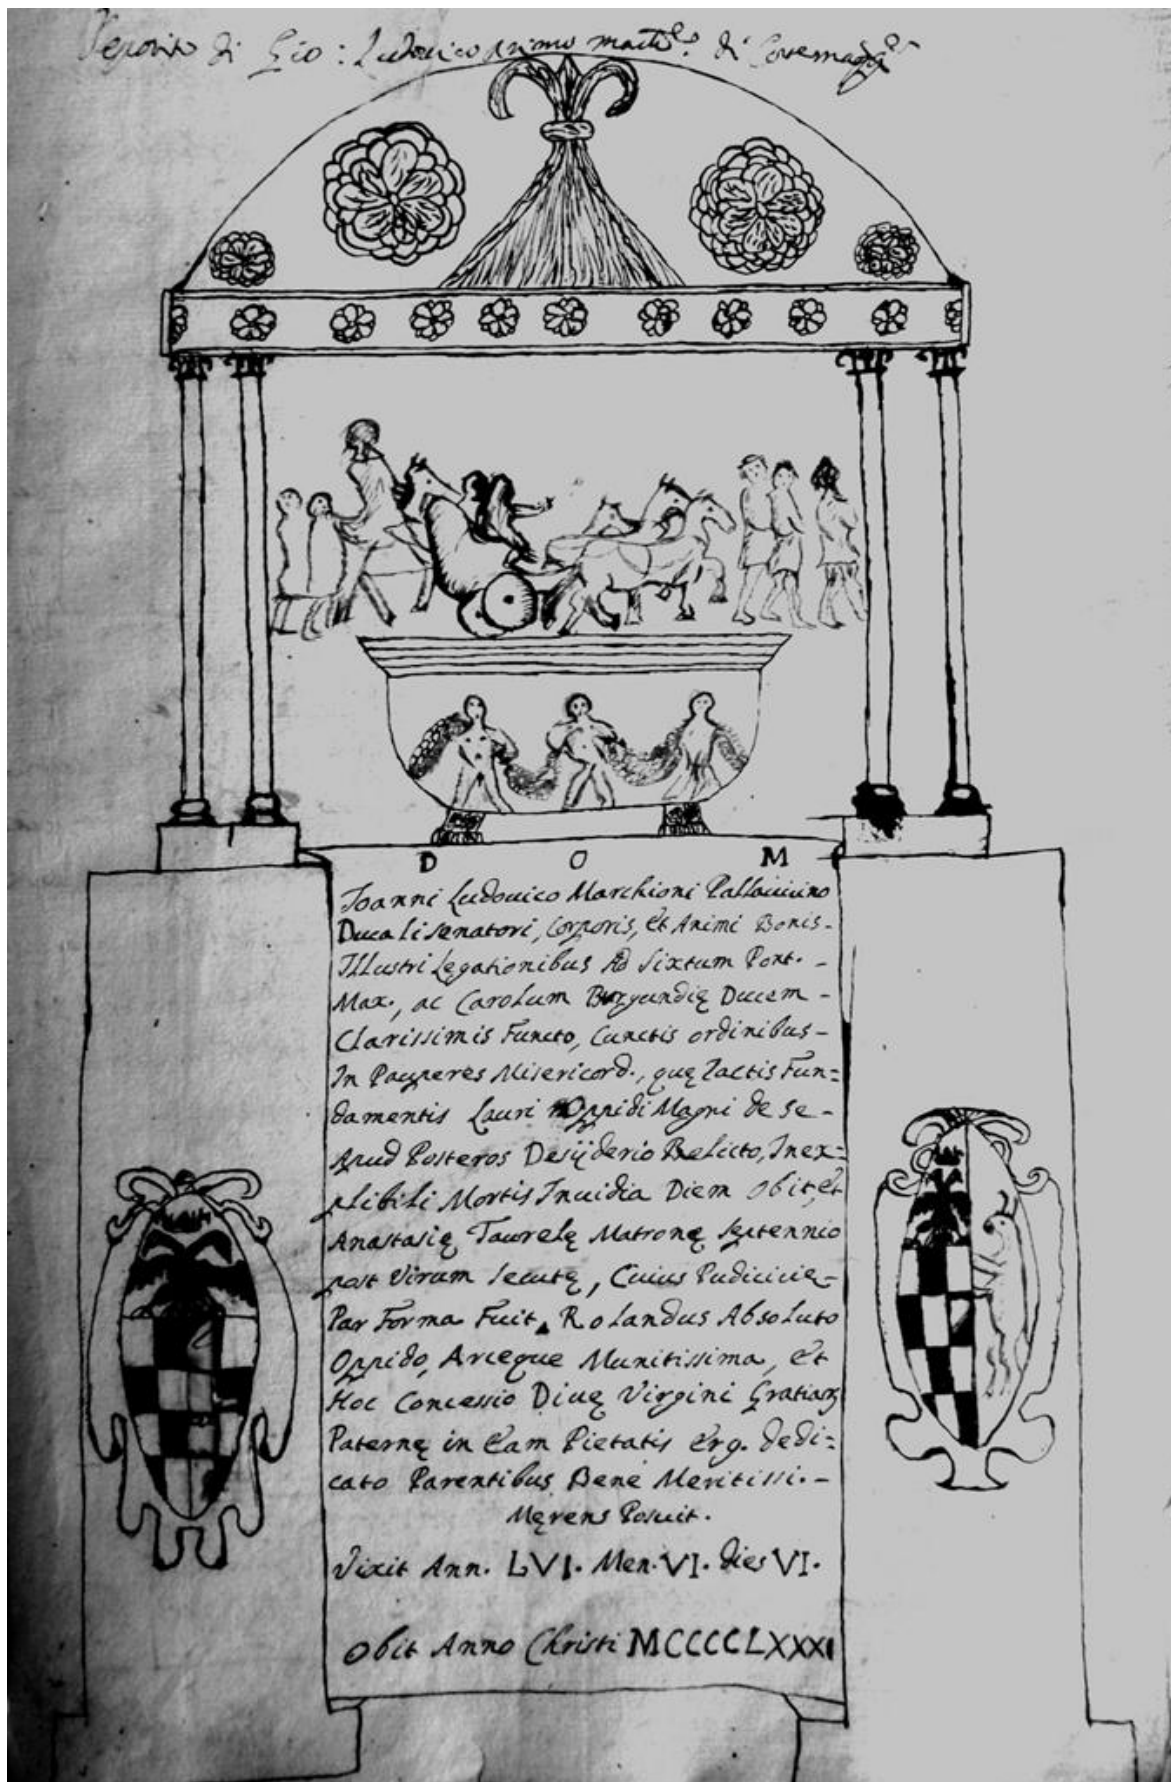 Deposito di Gio: Ludovico primo March.e di Cortemaggi.e
D O M
Joanni Ludouico Marchioni Pallauicino
Ducali senatori, Corporis, et Animi Bonis-
Illustri Legationibus Ad Sixtum Pont. -
Max., ac Carolum Burgundię Ducem -
Clarissimis Functo, Cunctis ordinibus-
In Pauperes Misericord., quę Iactis Fun=
damentis Lauri Oppidi Magni de se -
Apud Posteros Desijderio Relicto, Inex=
plibili Mortis Inuidia Diem Obijt, et
Anastasię Taurelę Matronę septennio
post Virum secutę, Cuius Pudicicię-
Par Forma Fuit, Rolandus Absoluto
Oppido, Arceque Munitissima, et
Hoc Concessio Diuę Virgini Gratiarꝫ
Paternę in Eam Pietatis Erg. dedi=
cato Parentibus Bene Meritissi. -
Męrens Posuit.
Vixit Ann. LVI. Men. VI. dies VI.
Obit Anno Christi MCCCCLXXXI